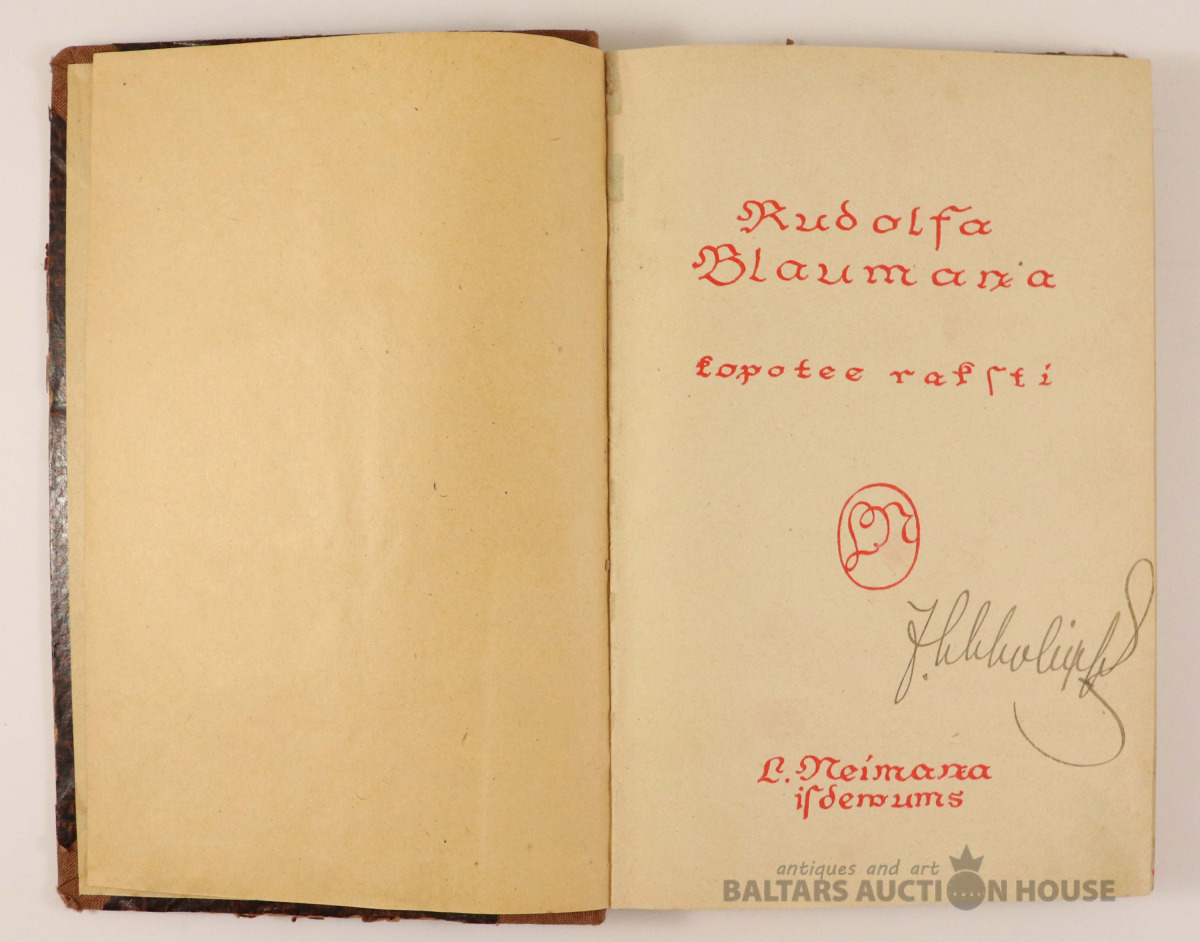 Rudolfa
Blaumaņa
kopotee rakſti
LN
L. Neimaņa
iſdewums
antiques and art
BALTARS AUCTION HOUSE